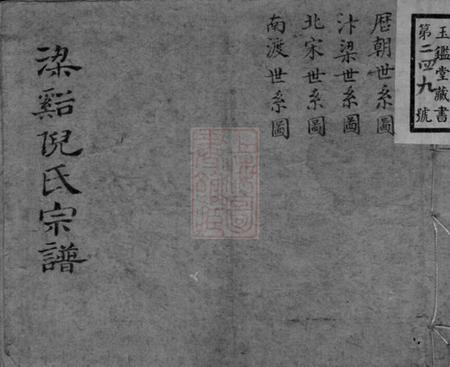 玉鑑堂藏書
第二四九號
歷朝世系圖
汴梁世系圖
北宋世系圖
南渡世系圖
梁谿倪氏宗譜